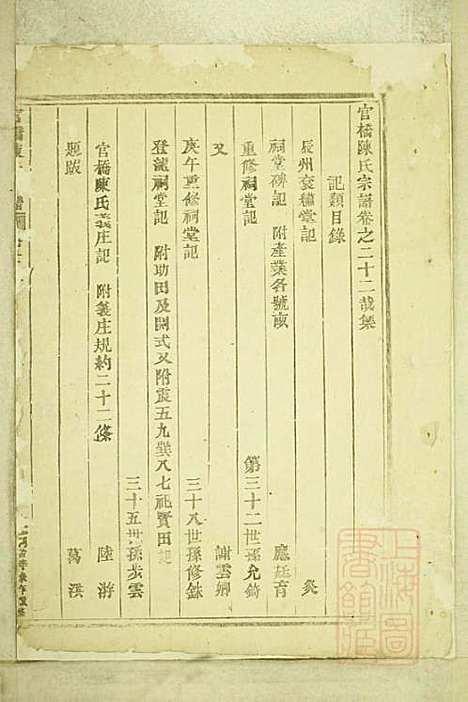 官橋陳氏宗譜卷之二十二哉集
記類目錄
辰州衮繡堂記 炎
祠堂碑記 附產業各號畝 應廷育
重修祠堂記 第三十二世孫允錡
又 謝雲卿
庚午重修祠堂記 三十八世孫修銖
登龍祠堂記 附助田及開式又附震五九巽八七祀賢田記 三十五世孫步雲
官橋陳氏義庄記 附義庄規約二十二條 陸游
題跋 葛洪
上海圖書館藏